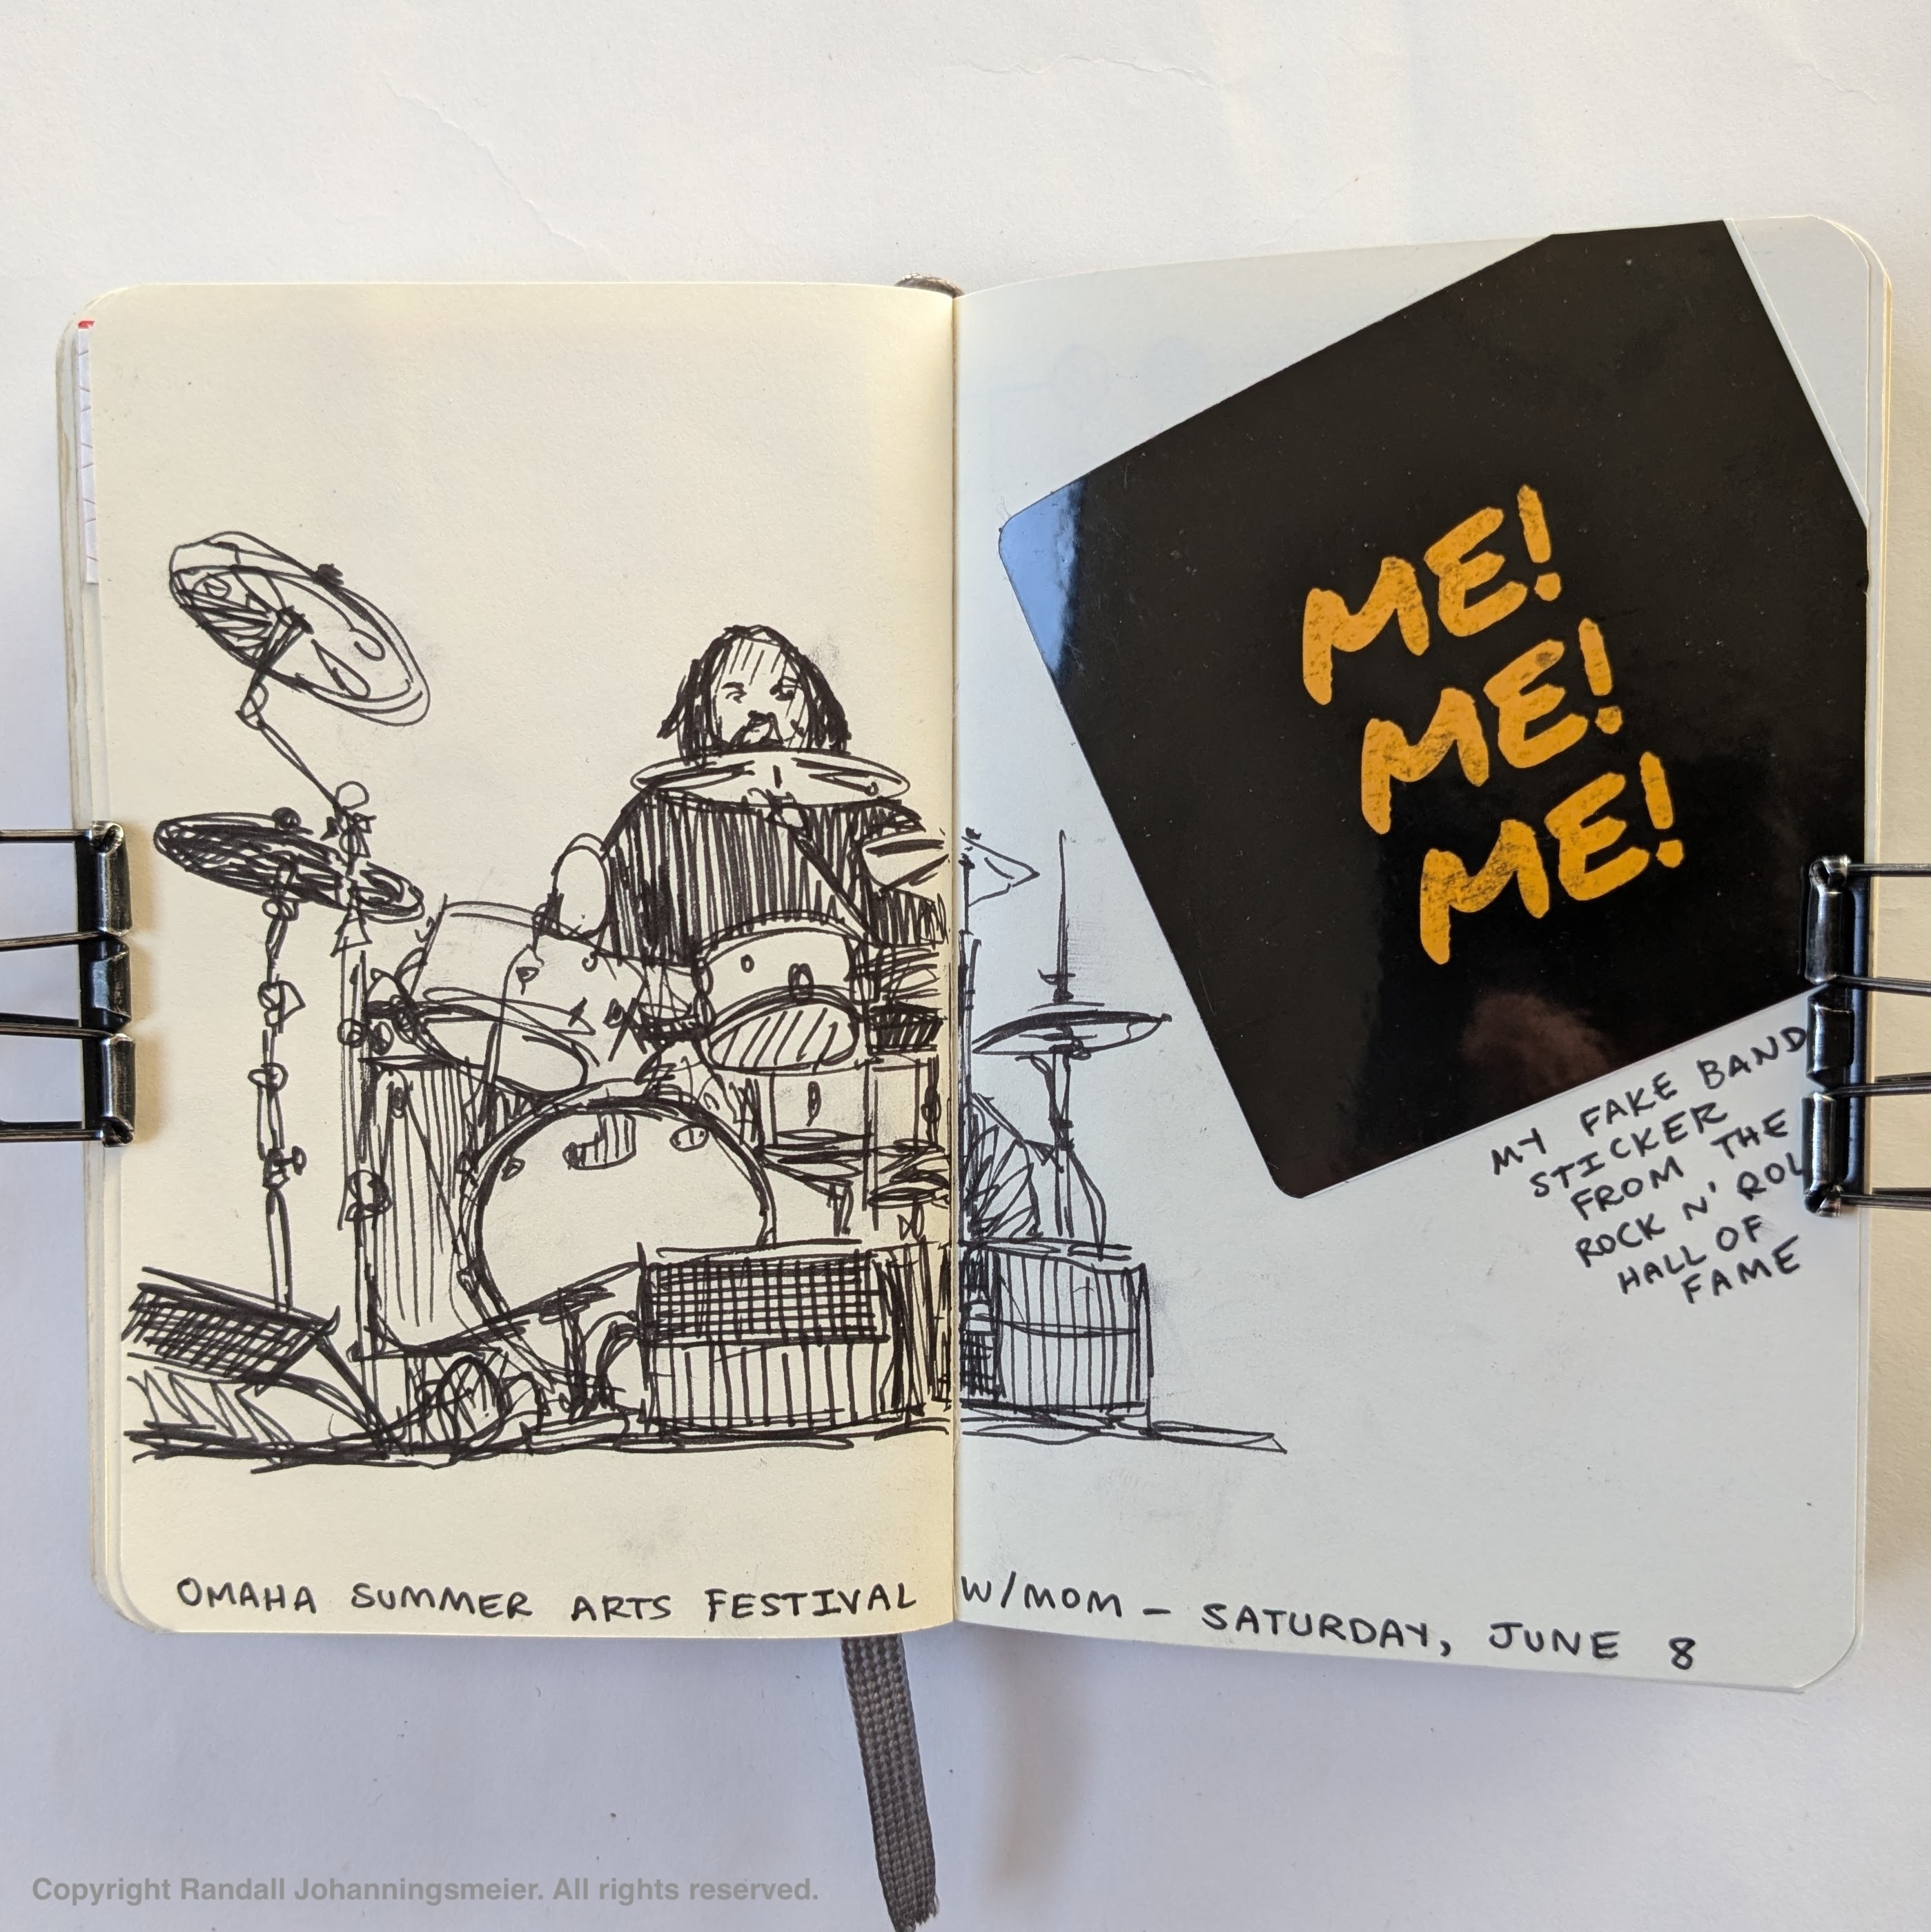 ME!
ME!
ME!
MY FAKE BAND
STICKER
FROM THE
ROCK N' ROL
HALL OF
FAME
OMAHA SUMMER ARTS FESTIVAL W/MOM – SATURDAY, JUNE 8
Copyright Randall Johanningsmeier. All rights reserved.